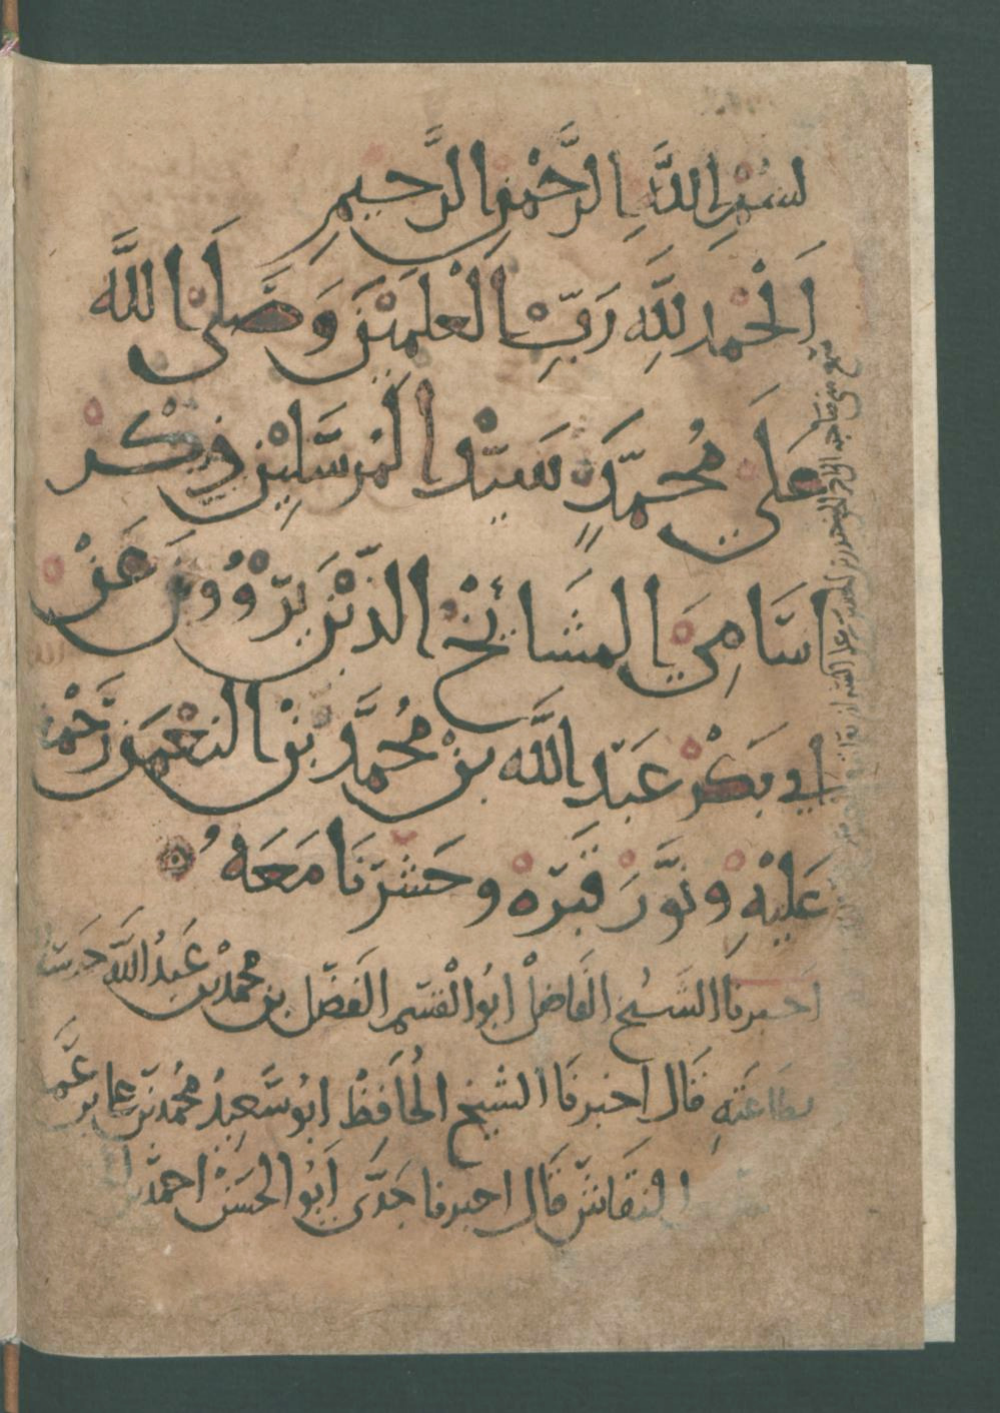 بسم الله الرحمن الرحيم
الحمد لله رب العلمين وصلى الله
على محمد سيد المرسلين ذكر
اسامي المشائخ الذين يروون عن
ابي بكر عبد الله بن محمد بن النعمن رحمة
عليه ونور قبره وحشرنا معه
اخبرنا الشيخ الفاضل ابو القسم الفضل بن محمد بن عبد الله حرسه
بطاعته قال اخبرنا الشيخ الحافظ ابو سعيد محمد بن علي بن عمر
النقاش قال اخبرنا جدي ابو الحسن احمد بن